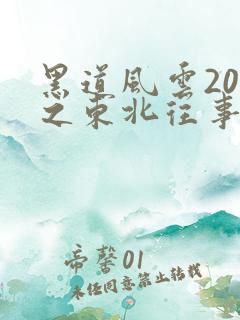 黑道风雲20
之东北往事
帝馨01
未经同意禁止转载